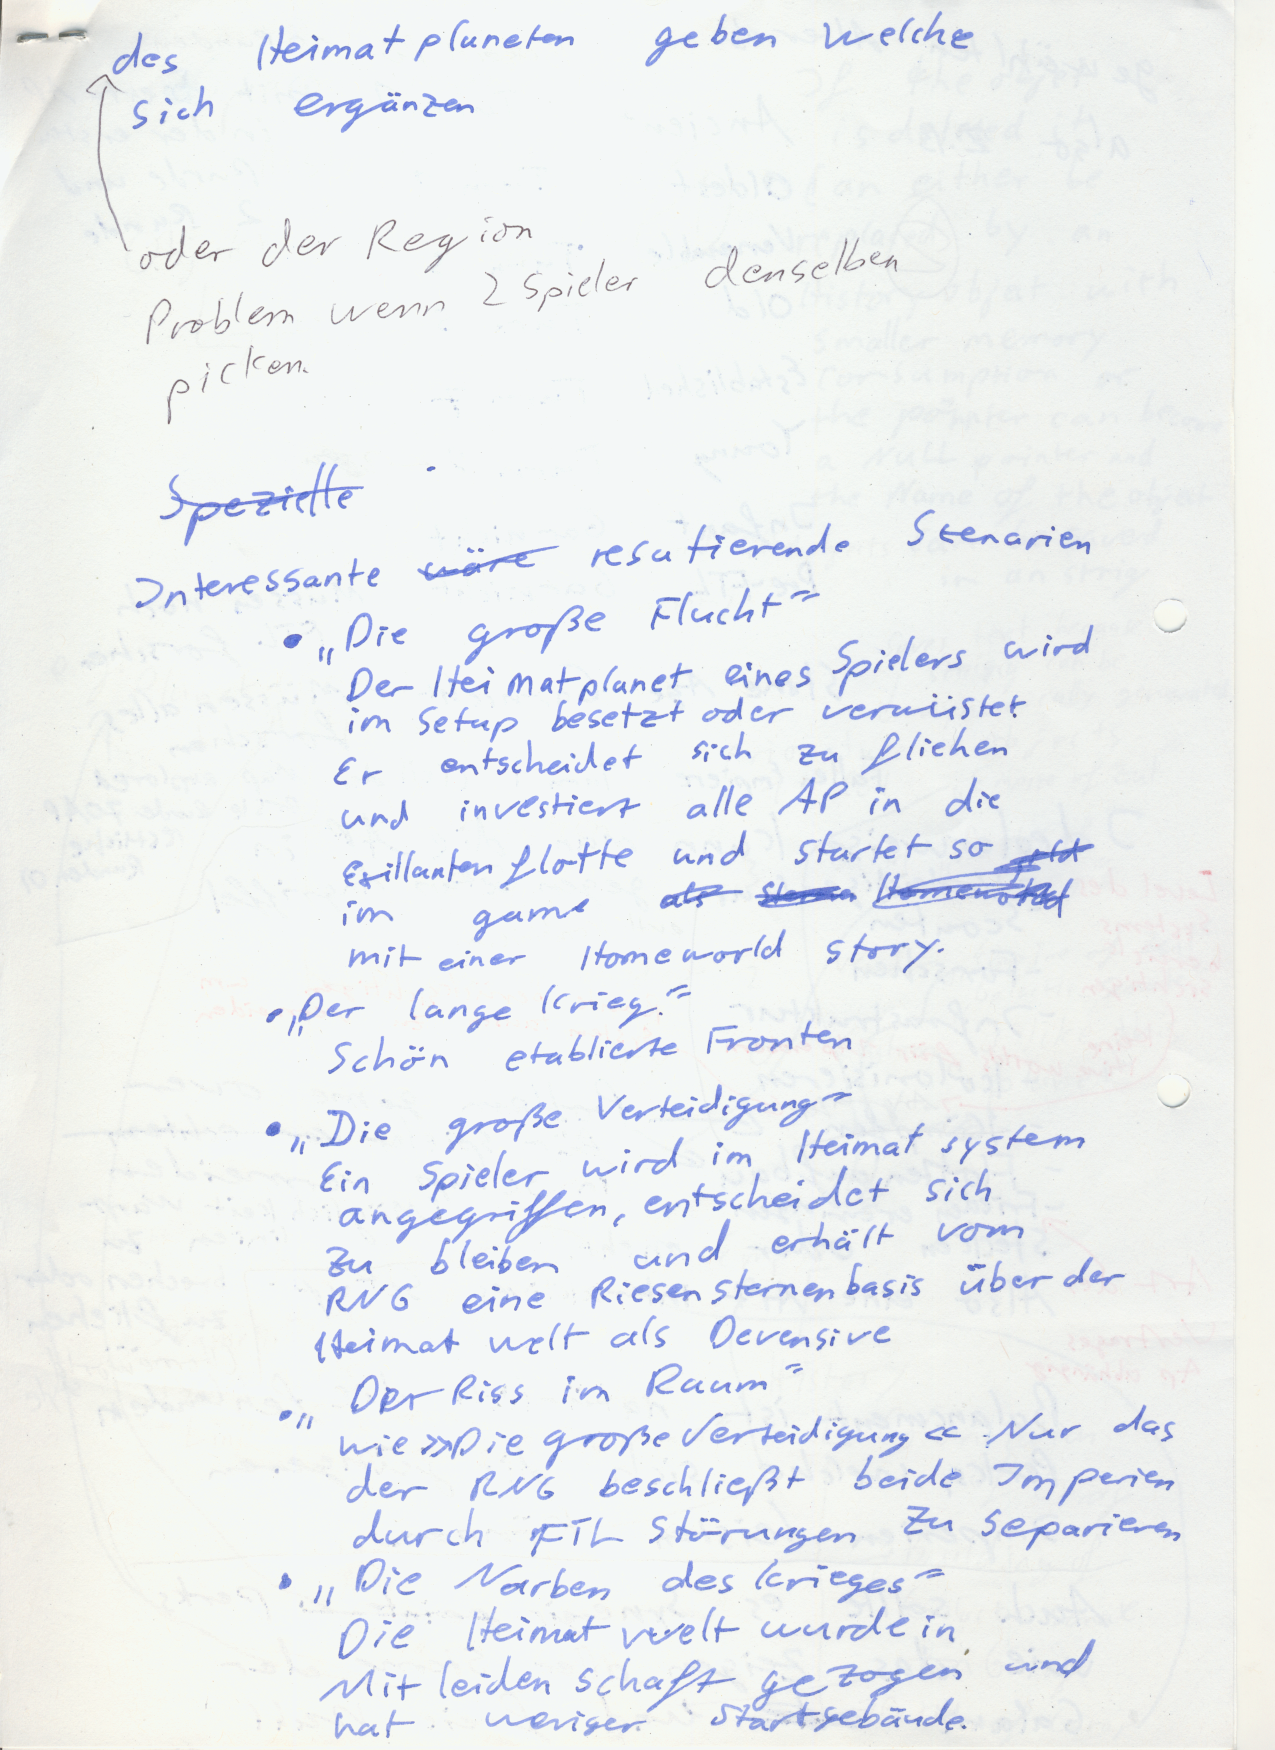 des Heimatplaneten geben welche
sich ergänzen
oder der Region
Problem wenn 2 Spieler denselben
picken.
Spezielle
Interessante wäre resutierende Szenarien
• „Die große Flucht"
Der Heimatplanet eines Spielers wird
im Setup besetzt oder verwüstet
Er entscheidet sich zu fliehen
und investiert alle AP in die
Exillantenflotte und startet so
im game als Homeworld
mit einer Homeworld story.
• „Der lange Krieg."
Schön etablierte Fronten
• „Die große Verteidigung"
Ein Spieler wird im Heimatsystem
angegriffen, entscheidet sich
zu bleiben und erhält vom
RNG eine Riesensternenbasis über der
Heimatwelt als Devensive
• „Der Riss im Raum"
wie »Die große Verteidigung« Nur das
der RNG beschließt beide Imperien
durch FTL Störungen zu separieren
• „Die Narben des Krieges"
Die Heimatwelt wurde in
Mitleidenschaft gezogen und
hat weniger Startgebäude.